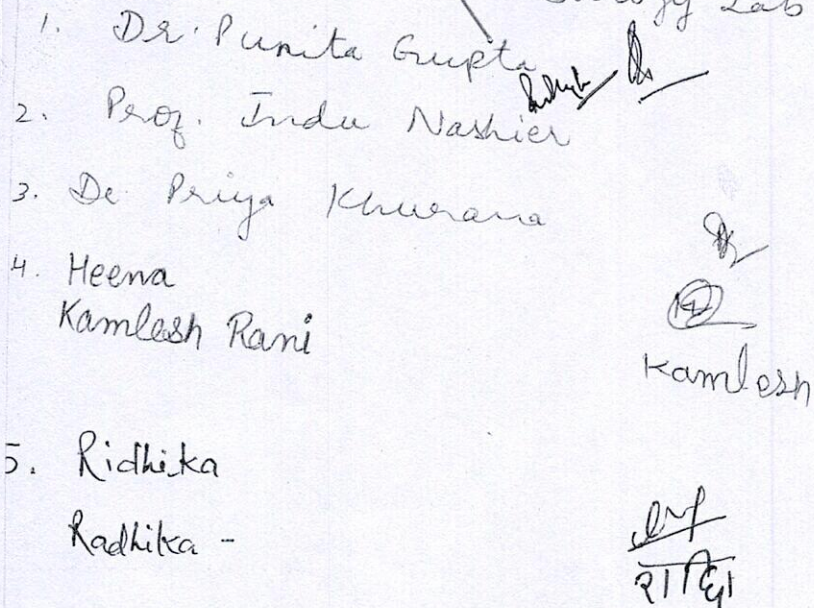 Lab
1. Dr. Punita Gupta
2. Prof. Indu Nashier
3. Dr Priya Khurana
4. Heena
Kamlesh Rani
Kamlesh
5. Ridhika
Radhika -